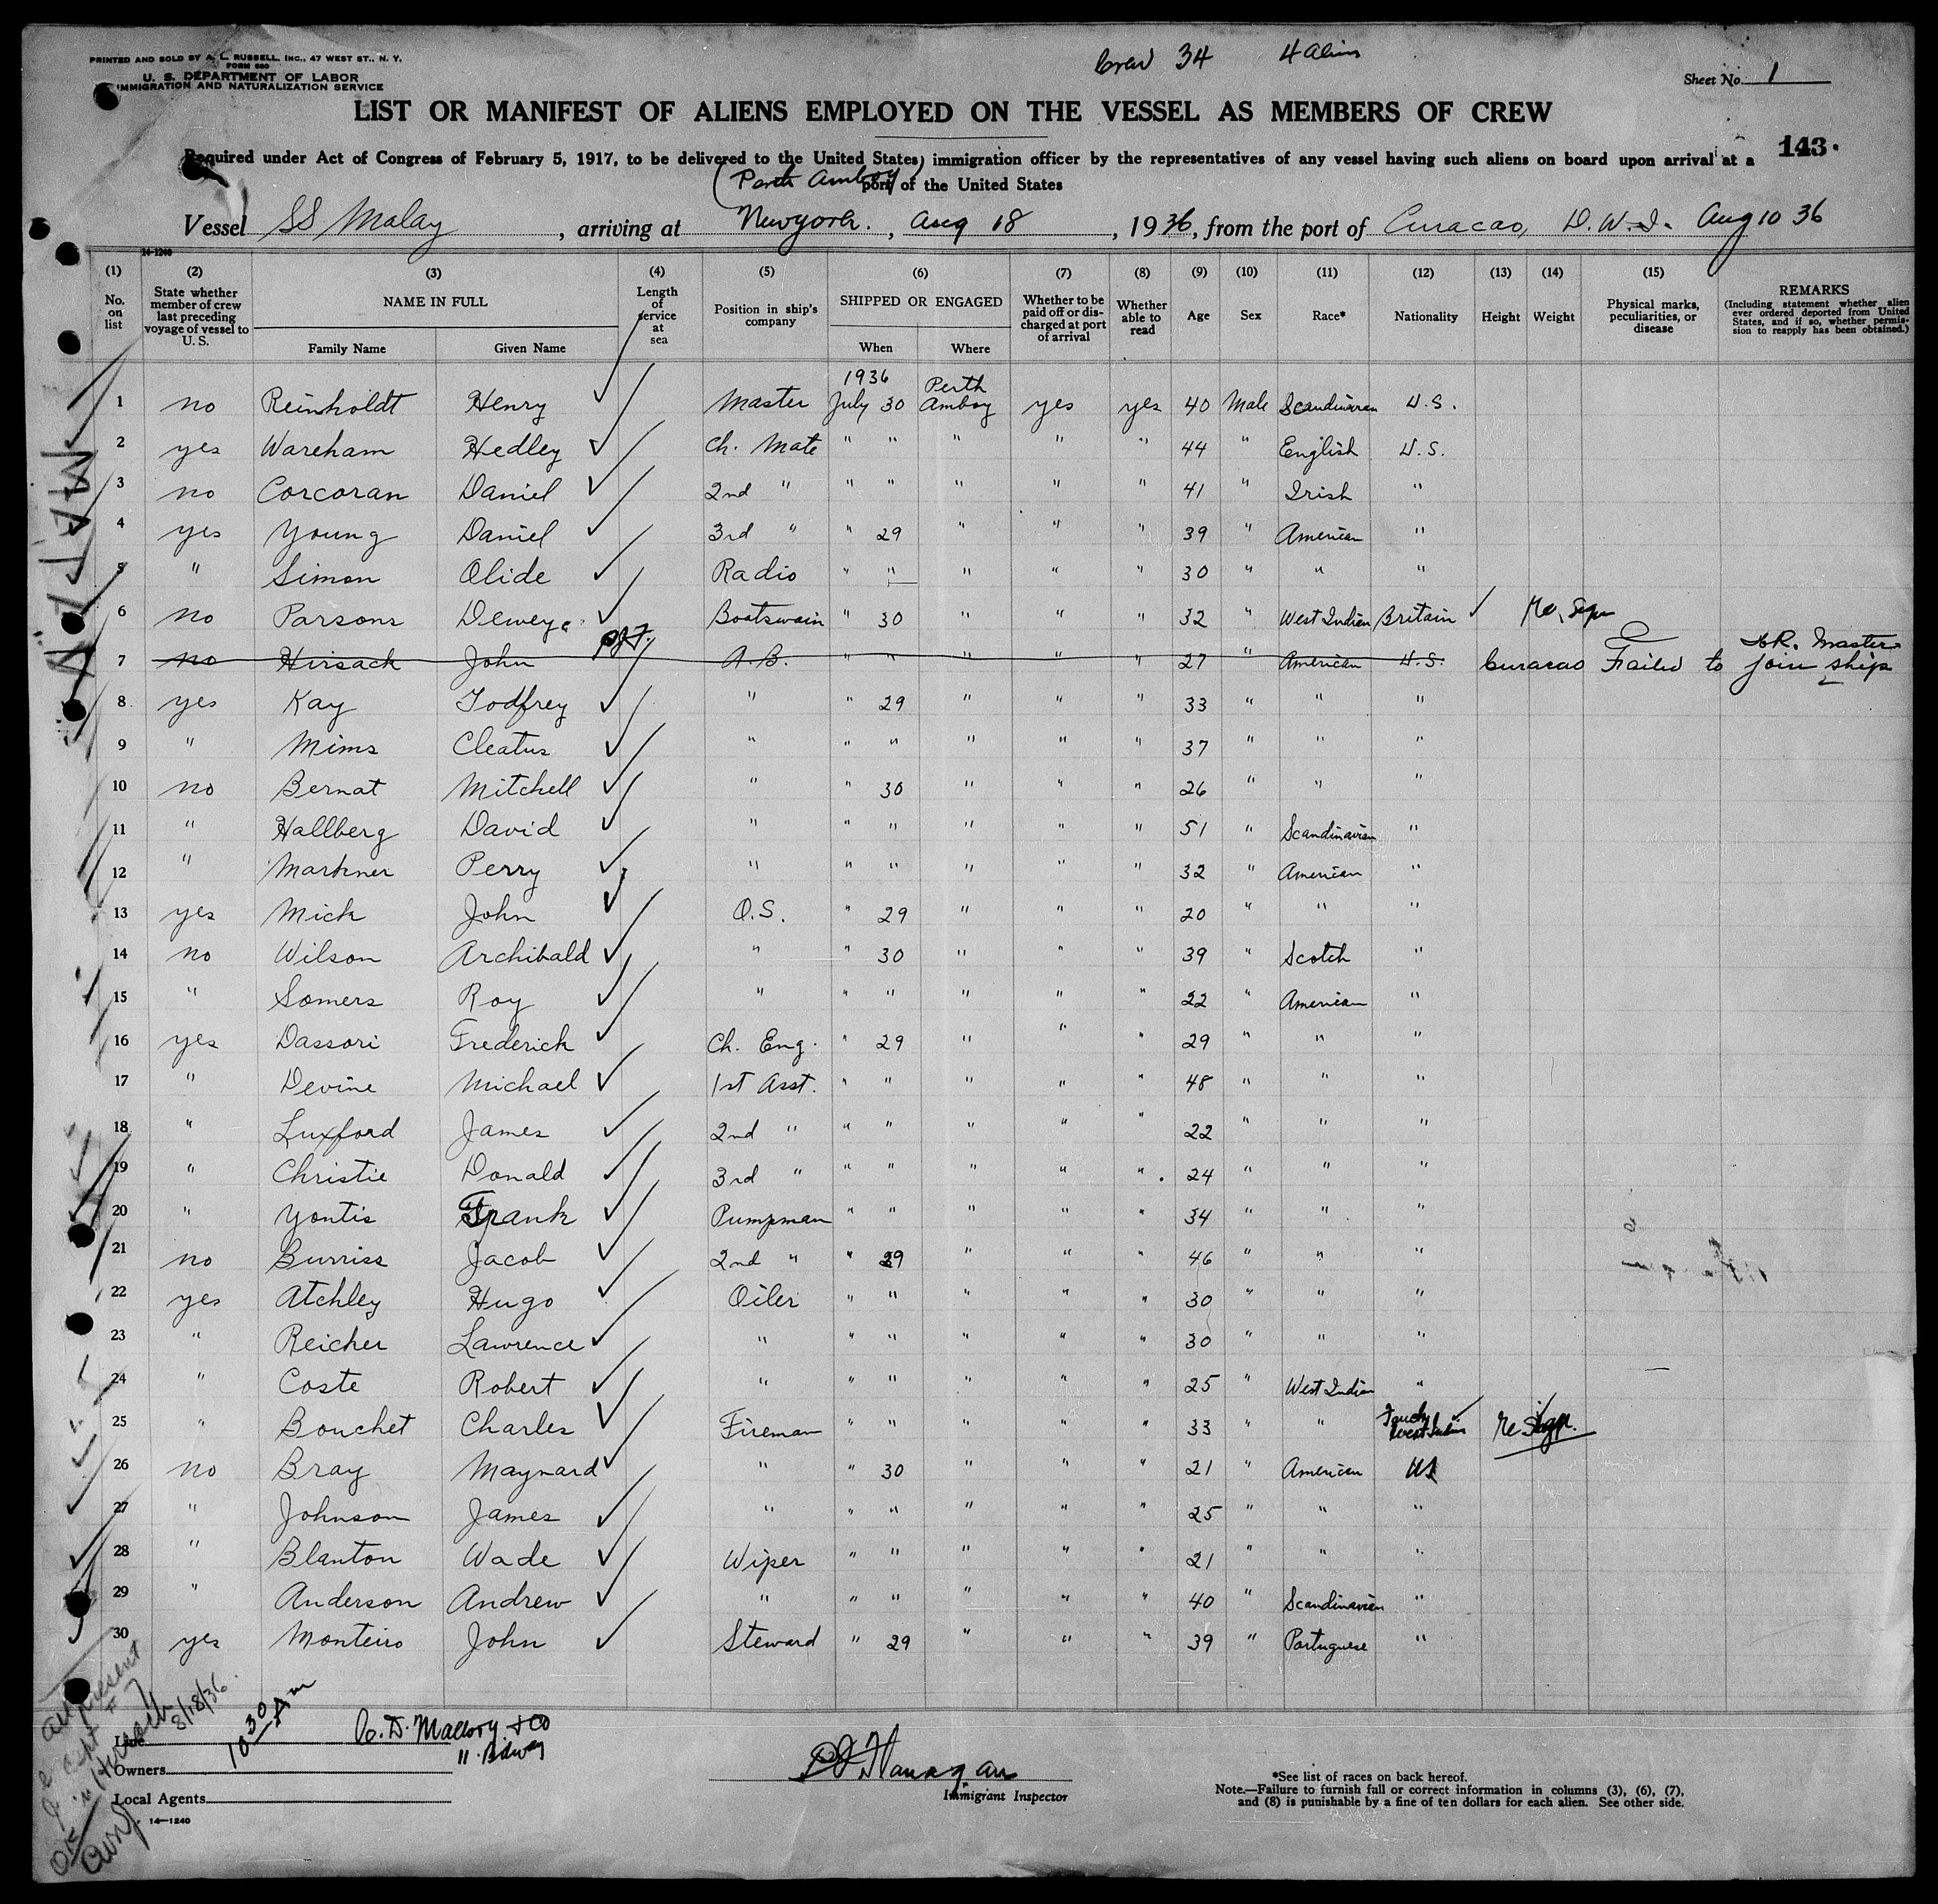 PRINTED AND SOLD BY A. L. RUSSELL, INC., 47 WEST ST., N. Y.
FORM 680
U. S. DEPARTMENT OF LABOR
IMMIGRATION AND NATURALIZATION SERVICE
Crew 34 4 Aliens
Sheet No. 1
LIST OR MANIFEST OF ALIENS EMPLOYED ON THE VESSEL AS MEMBERS OF CREW
143
Required under Act of Congress of February 5, 1917, to be delivered to the United States immigration officer by the representatives of any vessel having such aliens on board upon arrival at a
port of the United States
(Perth Amboy)
Vessel SS Malay, arriving at New york., Aug 18, 1936, from the port of Curacao, D.W.I. Aug 10 36
14-1240
(1) (2) (3) (4) (5) (6) (7) (8) (9) (10) (11) (12) (13) (14) (15)
No. on list | State whether member of crew last preceding voyage of vessel to U. S. | NAME IN FULL | Length of service at sea | Position in ship's company | SHIPPED OR ENGAGED | Whether to be paid off or discharged at port of arrival | Whether able to read | Age | Sex | Race* | Nationality | Height | Weight | Physical marks, peculiarities, or disease | REMARKS (Including statement whether alien ever ordered deported from United States, and if so, whether permission to reapply has been obtained.)
Family Name Given Name When Where
1 no Reinholdt Henry Master 1936 July 30 Perth Amboy yes yes 40 Male Scandinavian U.S.
2 yes Wareham Hedley Ch. Mate " " " " " 44 " English U.S.
3 no Corcoran Daniel 2nd " " " " " " 41 " Irish "
4 yes Young Daniel 3rd " " 29 " " " 39 " American "
5 " Simon Olide Radio " " " " " 30 " " "
6 no Parsons Dewey Boatswain " 30 " " " 32 " West Indian Britain
7 no Hirsack John A.B. " " " " " 27 " American U.S. Curacao Failed to join ship Master
8 yes Kay Godfrey " " 29 " " 33 " " "
9 " Mims Cleatus " " " " " " 37 " " "
10 no Bernat Mitchell " " 30 " " " 26 " " "
11 " Hallberg David " " " " " " 51 " Scandinavian "
12 " Markner Perry " " " " " " 32 " American "
13 yes Mick John O.S. " 29 " " " 20 " " "
14 no Wilson Archibald " " 30 " " " 39 " Scotch "
15 " Somers Roy " " " " " " 22 " American "
16 yes Dassori Frederick Ch. Eng. " 29 " " " 29 " " "
17 " Devine Michael 1st Asst. " " " " " 48 " " "
18 " Luxford James 2nd " " " " " " 22 " " "
19 " Christie Donald 3rd " " " " " " 24 " " "
20 " Yontis Frank Pumpman " " " " " 34 " " "
21 no Burriss Jacob 2nd " " 29 " " " 46 " " "
22 yes Atchley Hugo Oiler " " " " " 30 " " "
23 " Reicher Lawrence " " " " " " 30 " " "
24 " Coste Robert " " " " " " 25 " West Indian "
25 " Bouchet Charles Fireman " " " " " 33 " " French West Indies
26 no Bray Maynard " " 30 " " " 21 " American US
27 " Johnson James " " " " " " 25 " " "
28 " Blanton Wade Wiper " " " " " 21 " " "
29 " Anderson Andrew " " " " " " 40 " Scandinavian "
30 yes Monteiro John Steward " 29 " " " 39 " Portuguese "
8/18/36
10 30 Am
Line
C. D. Mallory & Co
Owners
Local Agents
14—1240
Immigrant Inspector
*See list of races on back hereof.
Note.—Failure to furnish full or correct information in columns (3), (6), (7),
and (8) is punishable by a fine of ten dollars for each alien. See other side.